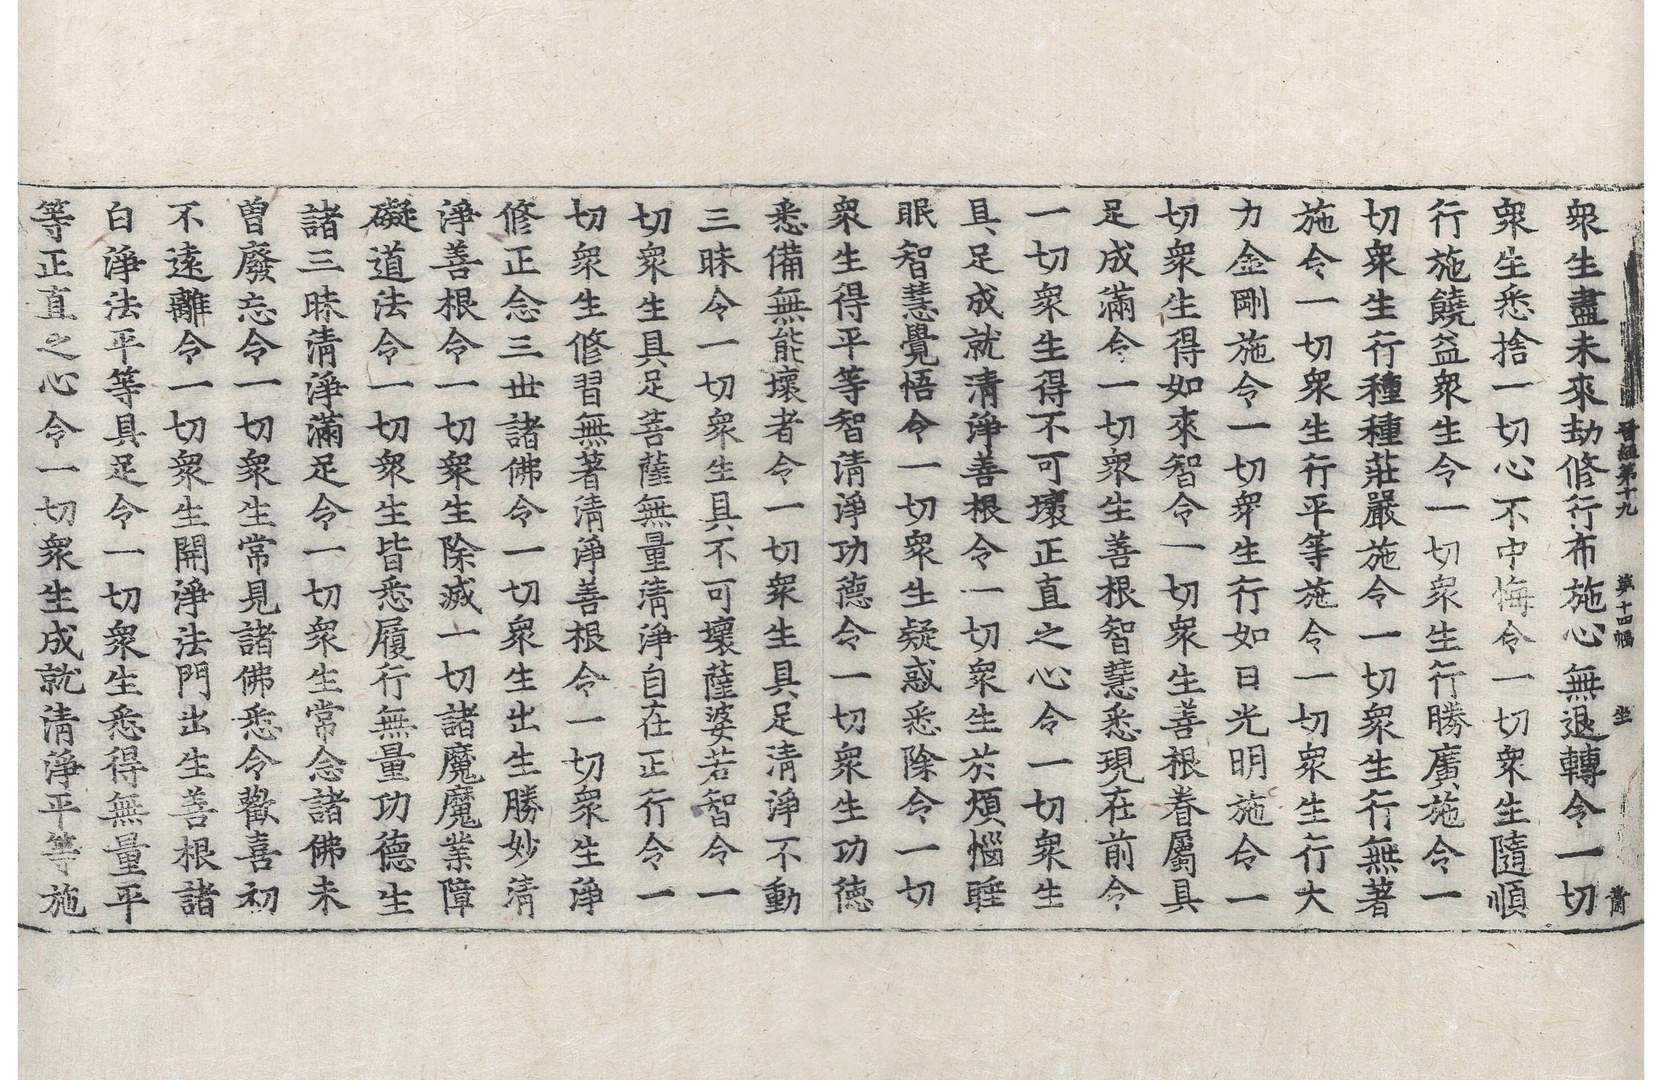 晋經第十九 第十四幅 坐 
衆生盡未來劫修行布施心無退轉令一切
衆生悉捨一切心不中悔令一切衆生隨順
行施饒益衆生令一切衆生行勝廣施令一
切衆生行種種莊嚴施令一切衆生行無著
施令一切衆生行平等施令一切衆生行大
力金剛施令一切衆生行如日光明施令一
切衆生得如來智令一切衆生善根眷屬具
足成滿令一切衆生善根智慧悉現在前令
一切衆生得不可壞正直之心令一切衆生
具足成就清淨善根令一切衆生於煩惱睡
眠智慧覺悟令一切衆生疑惑悉除令一切
衆生得平等智清淨功德令一切衆生功德
悉備無能壞者令一切衆生具足清淨不動
三昧令一切衆生具不可壞薩婆若智令一
切衆生具足菩薩無量清淨自在正行令一
切衆生修習無著清淨善根令一切衆生淨
修正念三世諸佛令一切衆生出生勝妙清
淨善根令一切衆生除滅一切諸魔魔業障
礙道法令一切衆生皆悉履行無量功德生
諸三昧清淨滿足令一切衆生常念諸佛未
曽廢忘令一切衆生常見諸佛悉令歡喜初
不遠離令一切衆生開淨法門出生善根諸
白淨法平等具足令一切衆生悉得無量平
等正直之心令一切衆生成就清淨平等施